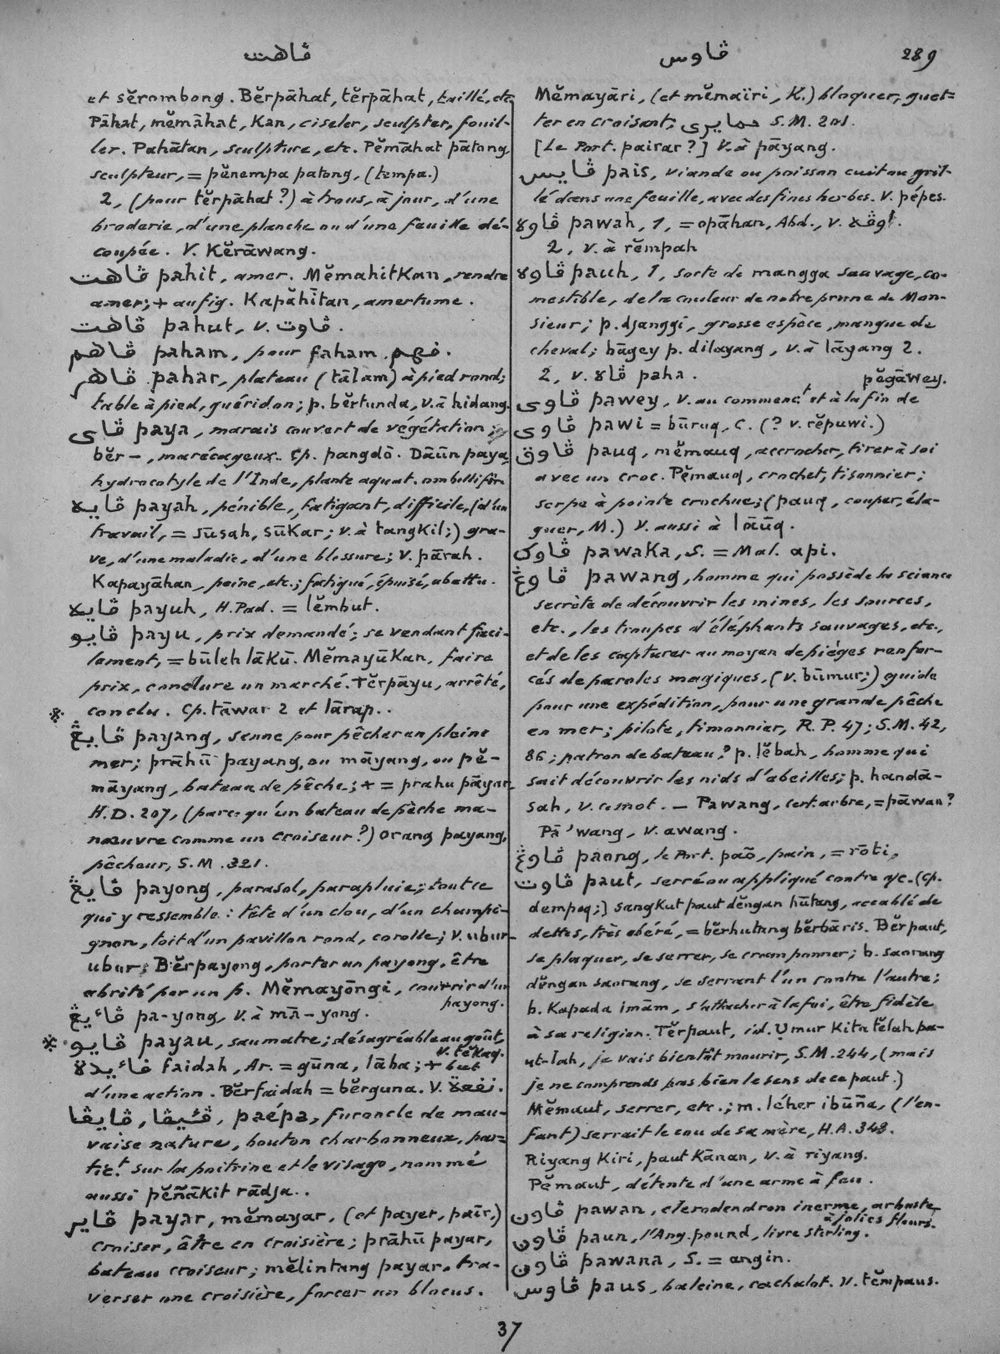 ڤاهت
ڤاوس
289
et sĕrombong. Bĕrpāhat, tĕrpāhat, taillé, etc.
Pāhat, mĕmāhat, Kan, ciseler, sculpter, fouil-
ler. Pahātan, sculpture, etc. Pĕmāhat pātong
sculpteur, = pĕnempa patong, (tempa.)
2, (pour tĕrpāhat?) à trous, à jour, d'une
broderie, d'une planche ou d'une feuille dé-
coupée. V. Kĕrāwang.
ڤاهت pahit, amer. Mĕmahitkan, rendre
amer; + au fig. Kapăhĭtan, amertume.
ڤاهت pahut, v. ڤاوت.
ڤاهم paham, pour faham. فهم.
ڤاهر pahar, plateau (tālam) à pied rond;
table à pied, guéridon; p. bĕrtunda, v. à hidang.
ڤاي paya, marais couvert de végétation;
bĕr-, marécageux. Cp. pangdò. Dāūn paya
hydrocotyle de l'Inde, plante aquat. ombellifère
ڤايه payah, pénible, fatigant, difficile, (d'un
travail, = sūsah, sūkar; v. à tangkil;) gra-
ve, d'une maladie, d'une blessure; V. pārah.
Kapayāhan, peine, etc.; fatigué, épuisé, abattu.
ڤايه payuh, H. Pad. = lĕmbut.
ڤايو payu, prix demandé; se vendant faci-
lement, = būleh lākū. Mĕmayūkan, faire
prix, conclure un marché. Tĕrpāyu, arrêté,
conclu. Cp. tāwar 2 et lārap..
* ڤايڠ payang, senne pour pêcher en pleine
mer; prāhū payang, ou māyang, ou pĕ-
māyang, bateau de pêche; + = prahu pāyar
H.D. 207, (parc. qu'un bateau de pèche ma-
nœuvre comme un croiseur?) orang payang,
pêcheur, S.M. 321.
ڤايڠ payong, parasol, parapluie; tout ce
qui y ressemble: tête d'un clou, d'un champi-
gnon, toit d'un pavillon rond, corolle; V. ubur-
ubur; Bĕrpayong, porter un payong, être
abrité par un p. Mĕmayōngi, couvrir d'un
payong.
ڤاءيڠ pa-yong, V. à mā-yong.
* ڤايو payau, saumatre; désagréable au goût,
v. tĕkaq.
فائيده faidah, Ar. = gūna, lāba; + but
d'une action. Bĕrfaidah = bĕrguna. V. نفقه.
ڤئيڤا, ڤايڤا, paépa, furoncle de mau-
vaise nature, bouton charbonneux, par-
tic.t sur la poitrine et le visage, nommé
aussi pĕñākit rādja..
ڤاير payar, mĕmayar, (et payer, païr,)
croiser, être en croisière; prāhū payar,
bateau croiseur; mĕlintang payar, tra-
verser une croisière, forcer un blocus.
Mĕmayāri, (et mĕmaïri, K.) bloquer, guet-
ter en croisant; ممايري S.M. 201.
[Le Port. pairar?] V. à pāyang.
ڤايس pais, viande ou poisson cuit ou gril-
lé dans une feuille, avec des fines herbes. V. pépes.
ڤاوه pawah, 1, = opāhan, Abd., v.
2, v. à rĕmpah
ڤاوه pauh, 1, sorte de mangga sauvage, co-
mestible, de la couleur de notre prune de Mon-
sieur; p. djanggi, grosse espèce, mangue de
cheval; bāgey p. dilayang, v. à lāyang 2.
2, v. ڤاه paha. pĕgāwey.
ڤاوي pawey, v. au commenc.t et à la fin de
ڤاوي pawi = būruq, C. (? v. rĕpuwi.)
ڤاوق pauq, mĕmauq, accrocher, tirer à soi
avec un croc. Pĕmauq, crochet, tisonnier;
serpe à pointe crochue; (pauq, couper, éla-
guer, M.) V. aussi à lāūq.
ڤاوك pawaka, S. = Mal. api.
ڤاوڠ pawang, homme qui possède la science
secrète de découvrir les mines, les sources,
etc., les troupes d'éléphants sauvages, etc.,
et de les capturer au moyen de pièges renfor-
cés de paroles magiques, (v. būmur;) guide
pour une expédition, pour une grande pêche
en mer; pilote, timonnier, R.P. 47; S.M. 42,
86; patron de bateau? p. lĕbah, homme qui
sait découvrir les nids d'abeilles; p. handā-
sah, v. ce mot. — Pawang, cert. arbre, = pāwan?
Pā'wang, v. awang.
ڤاوڠ paong, le Port. paõ, pain, = rōti,
ڤاوت paut, serré ou appliqué contre qc. (Cp.
dempoq;) sangkut paut dĕngan hūtang, accablé de
dettes, très obéré, = bĕrhutang bĕrbāris. Bĕrpaut,
se plaquer, se serrer, se cramponner; b. saorang
dĕngan saorang, se serrant l'un contre l'autre;
b. kapada imām, s'attacher à la foi, être fidèle
à sa religion. Tĕrpaut, id. Umur kita tĕlah pa-
ut-lah, je vais bientôt mourir, S.M. 244, (mais
je ne comprends pas bien le sens de ce paut.)
Mĕmaut, serrer, etc.; m. léher ibūña, (l'en-
fant) serrait le cou de sa mère, H.A. 348.
Riyang Kiri, paut Kānan, v. à riyang.
Pĕmaut, détente d'une arme à feu.
ڤاون pawan, clerodendron inerme, arbuste
à jolies fleurs.
ڤاون paun, l'Ang. pound, livre sterling.
ڤاون pawana, S. = angin.
ڤاوس paus, baleine, cachalot. v. tĕmpaus.
37